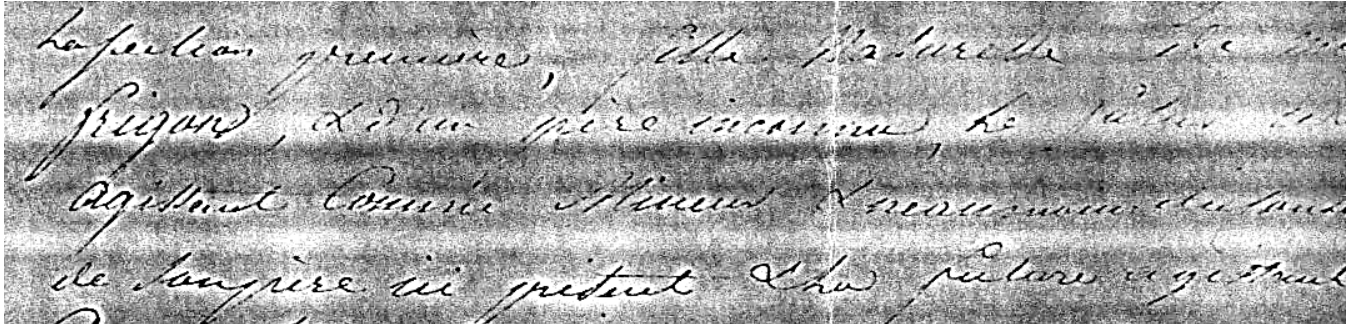 La section première, fille Naturelle de
frigard, & d'un père inconnu, Le futur
agissant Comme Mineur & néanmoins du
de Son père ici présent & La future agissant